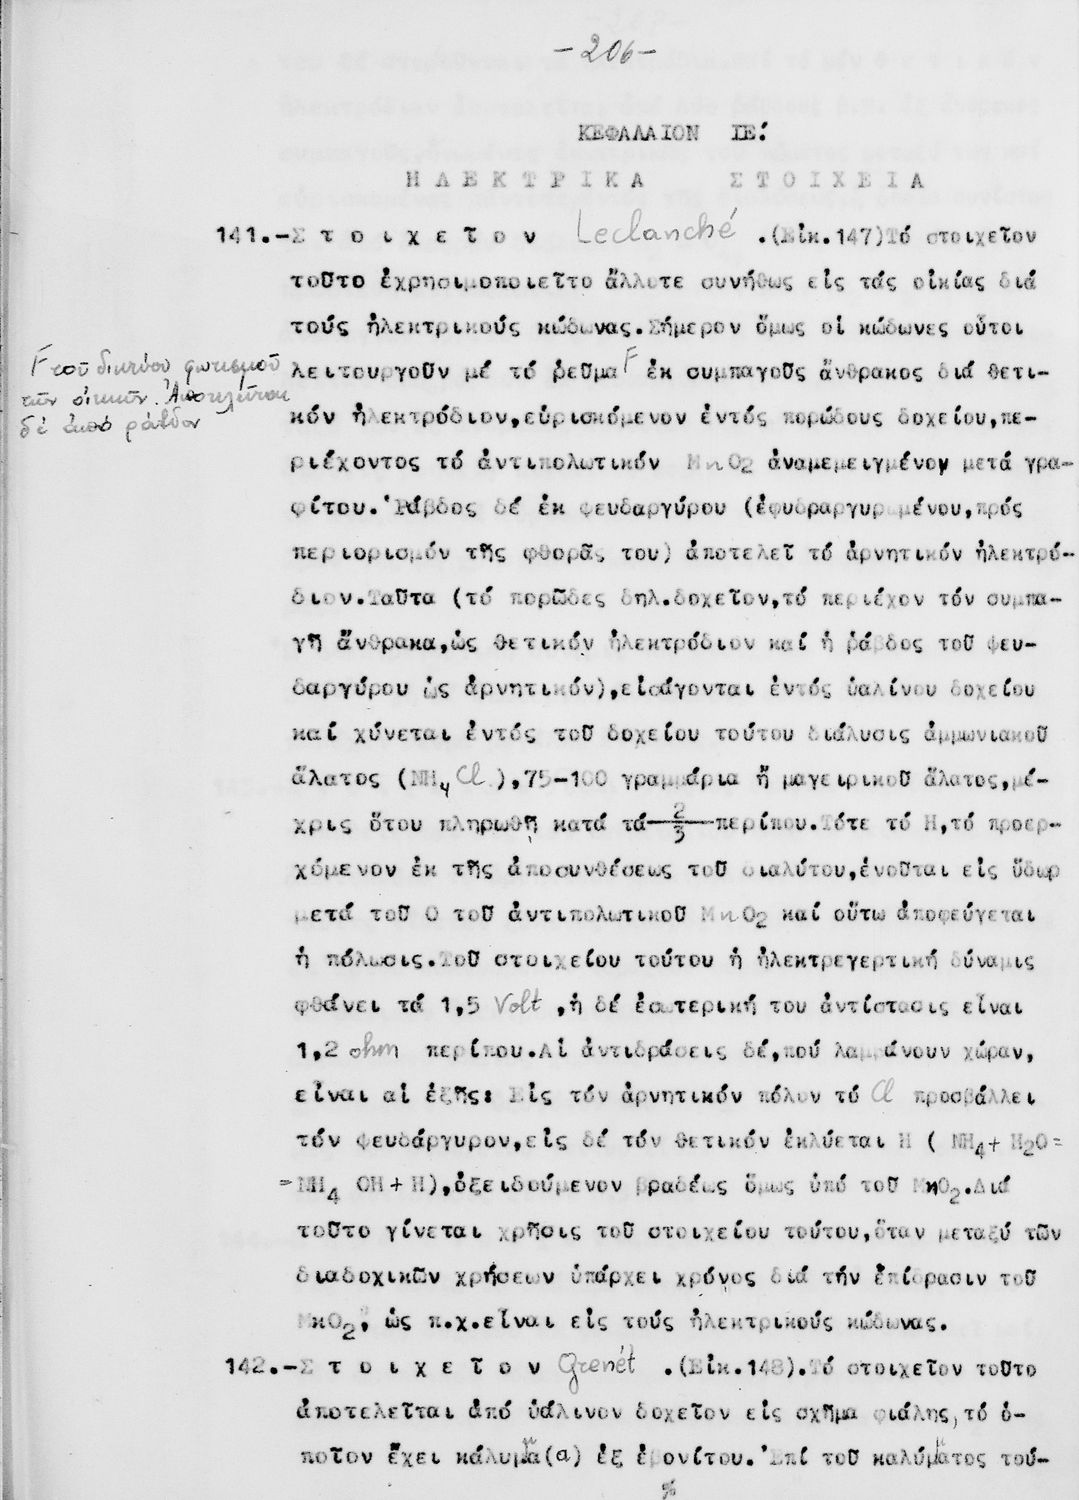 -206-
ΚΕΦΑΛΑΙΟΝ ΙΕ!
ΗΛΕΚΤΡΙΚΑ ΣΤΟΙΧΕΙΑ
141.-Στοιχεῖον Leclanché .(Εἰκ.147)Τό στοιχεῖον
τοῦτο ἐχρησιμοποιεῖτο ἄλλοτε συνήθως εἰς τάς οἰκίας διά
τούς ἠλεκτρικούς κώδωνας.Σήμερον ὅμως οἱ κώδωνες οὗτοι
λειτουργοῦν μέ τό ρεῦμα Γ ἐκ συμπαγοῦς ἄνθρακος διά θετι-
Γ τοῦ δικτύου φωτισμοῦ
τῶν οἰκιῶν. Ἀποτελεῖται
δέ ἀπό ράβδον
κόν ἠλεκτρόδιον,εὑρισκόμενον ἐντός πορώδους δοχείου,πε-
ριέχοντος τό ἀντιπολωτικόν MnO2 ἀναμεμειγμένον μετά γρα-
φίτου.Ῥάβδος δέ ἐκ ψευδαργύρου (ἐφυδραργυρωμένου,πρός
περιορισμόν τῆς φθορᾶς του) ἀποτελεῖ τό ἀρνητικόν ἠλεκτρό-
διον.Ταῦτα (τό πορῶδες δηλ.δοχεῖον,τό περιέχον τόν συμπα-
γῆ ἄνθρακα,ὡς θετικόν ἠλεκτρόδιον καί ἡ ράβδος τοῦ ψευ-
δαργύρου ὡς ἀρνητικόν),εἰσάγονται ἐντός ὑαλίνου δοχείου
καί χύνεται ἐντός τοῦ δοχείου τούτου διάλυσις ἀμμωνιακοῦ
ἅλατος (NH4 Cl ),75-100 γραμμάρια ἤ μαγειρικοῦ ἅλατος,μέ-
χρις ὅτου πληρωθῇ κατά τά 2/3 περίπου.Τότε τό Η,τό προερ-
χόμενον ἐκ τῆς ἀποσυνθέσεως τοῦ διαλύτου,ἑνοῦται εἰς ὕδωρ
μετά τοῦ Ο τοῦ ἀντιπολωτικοῦ MnO2 καί οὕτω ἀποφεύγεται
ἡ πόλωσις.Τοῦ στοιχείου τούτου ἡ ἠλεκτρεγερτική δύναμις
φθάνει τά 1,5 Volt ,ἡ δέ ἐσωτερική του ἀντίστασις εἶναι
1,2 ohm περίπου.Αἱ ἀντιδράσεις δέ,πού λαμβάνουν χώραν,
εἶναι αἱ ἑξῆς: Εἰς τόν ἀρνητικόν πόλον τό Cl προσβάλλει
τόν ψευδάργυρον,εἰς δέ τόν θετικόν ἐκλύεται Η ( NH4+ H2O=
=NH4 OH+H),ὀξειδούμενον βραδέως ὅμως ὑπό τοῦ MnO2.Διά
τοῦτο γίνεται χρῆσις τοῦ στοιχείου τούτου,ὅταν μεταξύ τῶν
διαδοχικῶν χρήσεων ὑπάρχει χρόνος διά τήν ἐπίδρασιν τοῦ
MnO2, ὡς π.χ.εἶναι εἰς τούς ἠλεκτρικούς κώδωνας.
142.-Στοιχεῖον Grenét .(Εἰκ.148).Τό στοιχεῖον τοῦτο
ἀποτελεῖται ἀπό ὑάλινον δοχεῖον εἰς σχῆμα φιάλης,τό ὁ-
ποῖον ἔχει κάλυμμα(a) ἐξ ἐβονίτου.Ἐπί τοῦ καλύμματος τού-
%